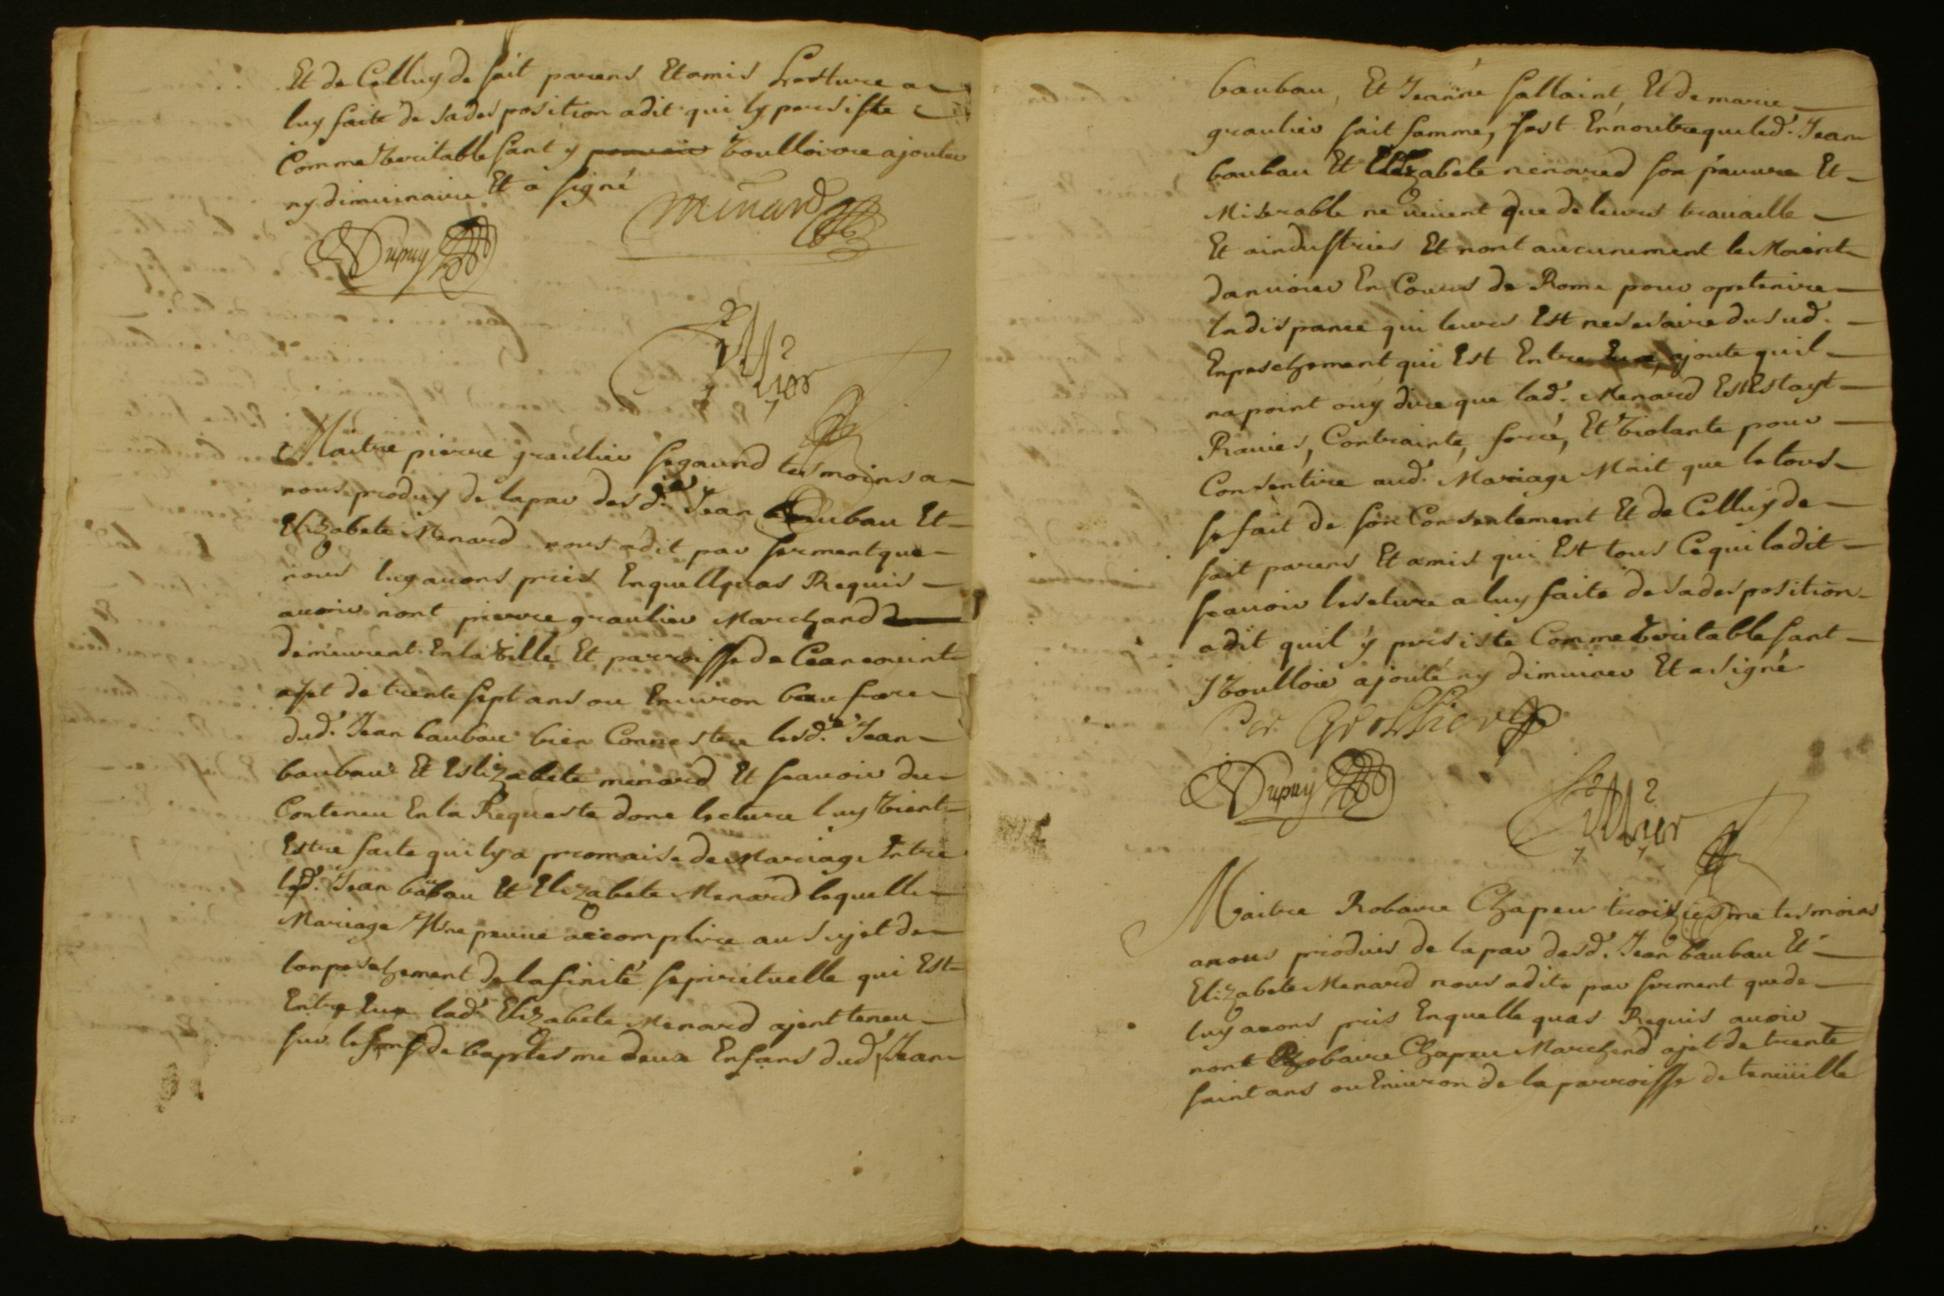 Et de Celluy de sait parens Et amis Lecture a
luy faite de sa desposition a dit qui ly persiste
Comme Veritable sant y pouvoir Voulloire ajouter
ny diminuaire Et a signé
menard
Dupuy
Maitre pierre graullier segaund tesmoins a
nous produy de la par desd. Jean baubau Et
Elizabete Menard nous a dit par serment que
nous luy auons pries Enquellquas Requis
auoir nont pierre graulier Marchand
demeurent En la Ville Et parroisse de
ajet de trente sept ans ou Enuiron bau frere
dud. Jean baubau bien Connestre lesd. Jean
baubau Et Eslizabete menard Et sauoir du
Contenu En la Requeste donc lecture luy Vient
Estre faite qui ly a promaise de Mariage Entre
led. Jean babau Et Elizabete Menard lequelle
Mariage Il ne peuue accomplire au sujet de
lenpeschement de lafinité sepirituelle qui Est
Entre Eux lad. Elizabete Menard ajent teneu
sur le fons de baptesme deux Enfans dud. Jean
baubau, Et Jeanne sallaint, Et de marie
graulier sait famme, sest En outre que led. Jean
baubau Et Elizabete menard son pauure Et
Miserable ne uiuent que de leurs trauaille
Et aindustries Et nont aucunement le Moient
danuoier En Cours de Rome pour optenire
la dispance qui leurs Est nesesaire dusud.
Enpeschement qui Est Entre Eux, ajoute quil
na point ouy dire que lad. Menard Est Estayt
Rauies, Contrainte, forcé, Et Violante pour
Consentire aud. Mariage Mait que le tous
se fait de son Consentement Et de Celluy de
sait parens Et amis qui Est tous Ce qui la dit
scauoir leseture a luy faite de sa desposition
a dit quil y persiste Comme Veritable sant
y Voulloir ajouté ny diminuer Et a signé
Dupuy
Maitre Robaire Chapeu troiziesme tesmoins
anous produis de la par desd. Jean baubau Et
Elizabete Menard nous a dite par serment quede
luy auons pris Enquelle quas Requis auoir
nont Robaire Chapeu Marchend ajet de trente
saint ans ou Enuiron de la parroisse de